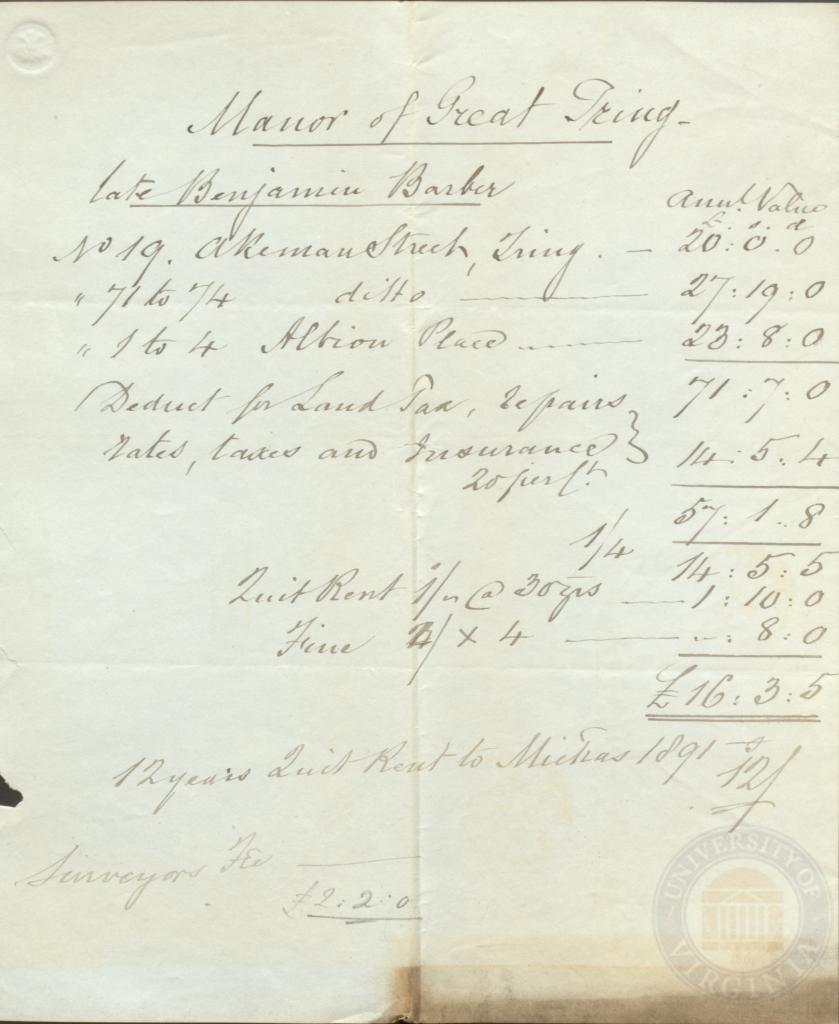 Manor of Great Tring -
late Benjamin Barber
Annl. Value
£. s. d
No 19. Akeman Street, Tring. — 20:0.0
" 71 to 74 ditto — 27:19:0
" 1 to 4 Albion Place — 23:8:0
71:7:0
Deduct for Land Tax, repairs
rates, taxes and Insurance } 14:5.4
20 per Ct.
57:1..8
1/4
14:5:5
Quit Rent 1/- @ 30 yrs — 1:10:0
Fine 2/ x 4 — ..:8:0
£16:3:5
12 years Quit Rent to Michas 1891 - 12/
Surveyors Fee —
£2:2:0
UNIVERSITY OF
VIRGINIA